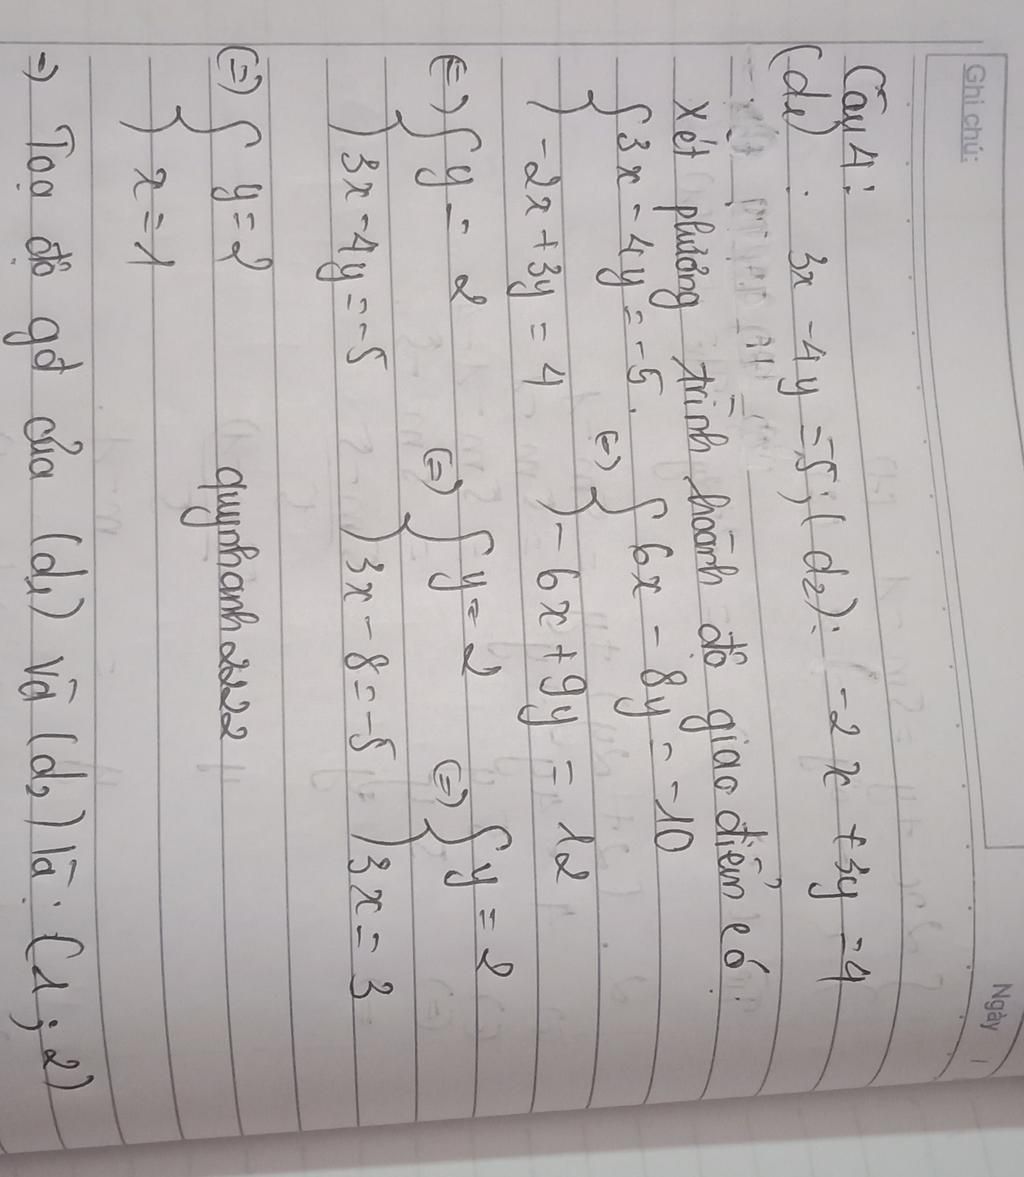 Ghi chú:
Ngày
Câu 4:
(d₁): 3x - 4y = -5; (d₂): -2x + 3y = 4
Xét phương trình hoành độ giao điểm có
{ 3x - 4y = -5 (=) { 6x - 8y = -10
-2x + 3y = 4 -6x + 9y = 12
(=) { y = 2 (=) { y = 2 (=) { y = 2
3x - 4y = -5 3x - 8 = -5 3x = 3
(=) { y = 2 quynhanh2222
x = 1
=) Toạ độ gđ của (d₁) và (d₂) là: (1; 2)